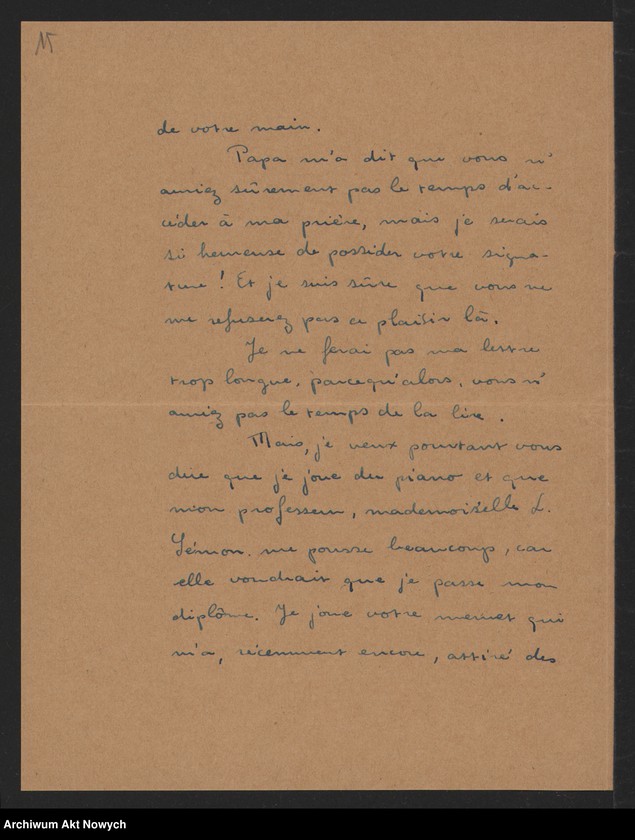 15
de votre main.
Papa m'a dit que vous n'
auriez sûrement pas le temps d'ac-
céder à ma prière, mais je serais
si heureuse de posséder votre signa-
ture ! Et je suis sûre que vous ne
me refuserez pas ce plaisir là.
Je ne ferai pas ma lettre
trop longue, parcequ'alors, vous n'
auriez pas le temps de la lire.
Mais, je veux pourtant vous
dire que je joue du piano et que
mon professeur, mademoiselle L.
me pousse beaucoup, car
elle voudrait que je passe mon
diplôme. Je joue votre menuet qui
m'a, récemment encore, attiré des
Archiwum Akt Nowych